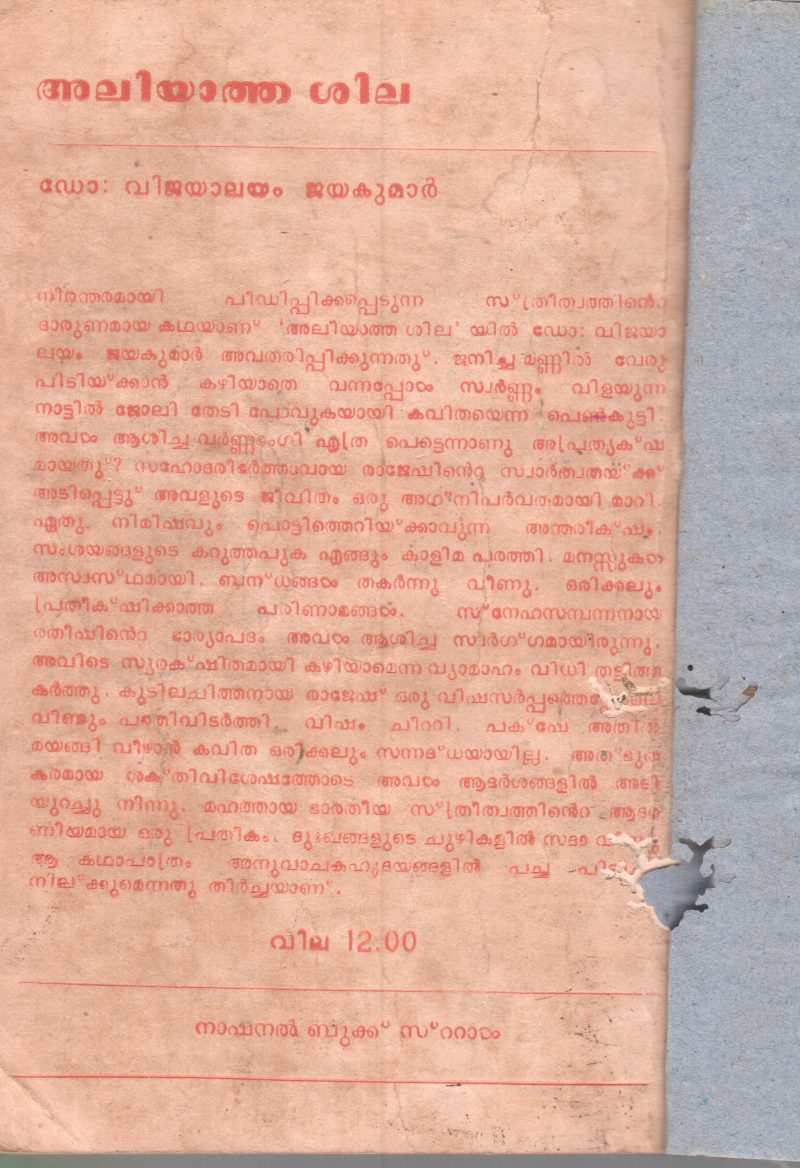 അലിയാത്ത ശില
ഡോ: വിജയാലയം ജയകുമാർ
നിരന്തരമായി പീഡിപ്പിക്കപ്പെടുന്ന സ്ത്രീത്വത്തിന്റെ
ദാരുണമായ കഥയാണ് 'അലിയാത്ത ശില' യിൽ ഡോ: വിജയാ
ലയം ജയകുമാർ അവതരിപ്പിക്കുന്നതു്. ജനിച്ച മണ്ണിൽ വേരു
പിടിയ്ക്കാൻ കഴിയാതെ വന്നപ്പോൾ സ്വർണ്ണം വിളയുന്ന
നാട്ടിൽ ജോലി തേടി പോവുകയായി കവിതയെന്ന പെൺകുട്ടി.
അവൾ ആശിച്ച വർണ്ണഭംഗി എത്ര പെട്ടെന്നാണു അപ്രത്യക്ഷ
മായതു്? സഹോദരിഭർത്താവായ രാജേഷിന്റെ സ്വാർത്ഥതയ്ക്ക്
അടിപ്പെട്ടു് അവളുടെ ജീവിതം ഒരു അഗ്നിപർവതമായി മാറി.
ഏതു നിമിഷവും പൊട്ടിത്തെറിയ്ക്കാവുന്ന അന്തരീക്ഷം.
സംശയങ്ങളുടെ കറുത്തപുക എങ്ങും കാളിമ പരത്തി. മനസ്സുകൾ
അസ്വസ്ഥമായി. ബന്ധങ്ങൾ തകർന്നു വീണു. ഒരിക്കലും
പ്രതീക്ഷിക്കാത്ത പരിണാമങ്ങൾ. സ്നേഹസമ്പന്നനായ
രതീഷിന്റെ ഭാര്യാപദം അവൾ ആശിച്ച സ്വർഗ്ഗമായിരുന്നു.
അവിടെ സുരക്ഷിതമായി കഴിയാമെന്ന വ്യാമോഹം വിധി
കർത്തു. കുടിലചിത്തനായ രാജേഷ് ഒരു വിഷസർപ്പത്തെ
വീണ്ടും പത്തിവിടർത്തി. വിഷം ചീറ്റി. പക്ഷേ അതിൽ
മയങ്ങി വീഴാൻ കവിത ഒരിക്കലും സന്നദ്ധയായില്ല. അത്ഭുത
കരമായ ശക്തിവിശേഷത്തോടെ അവൾ ആദർശങ്ങളിൽ അടി
യുറച്ചു നിന്നു. മഹത്തായ ഭാരതീയ സ്ത്രീത്വത്തിന്റെ ആദര
ണീയമായ ഒരു പ്രതീകം. ദുഃഖങ്ങളുടെ ചുഴികളിൽ സദാ
ആ കഥാപാത്രം അനുവാചകഹൃദയങ്ങളിൽ പച്ച
നില്ക്കുമെന്നതു തീർച്ചയാണ്.
വില 12.00
നാഷനൽ ബുക്ക് സ്റ്റാൾ